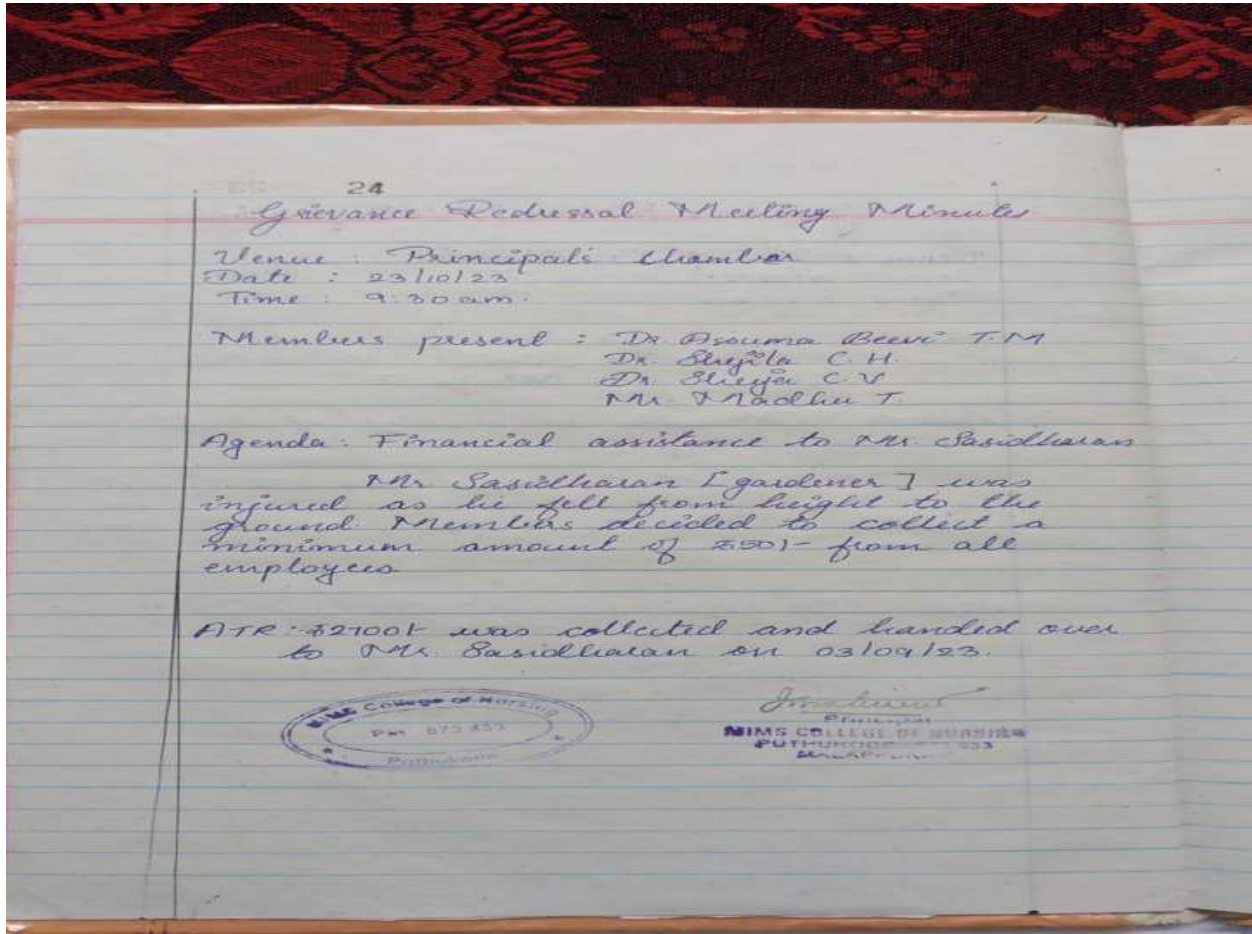 24
Grievance Redressal Meeting Minutes
Venue : Principal's Chamber
Date : 23/10/23
Time : 9:30 am.
Members present : Dr. Assuma Beevi T.M
Dr. Shejila C. H.
Dr. Sheeja C. V
Mr. Madhu T.
Agenda : Financial assistance to Mr. Sasidharan
Mr Sasidharan [gardener] was
injured as he fell from height to the
ground. Members decided to collect a
minimum amount of ₹50/- from all
employees
ATR : ₹2700/- was collected and handed over
to Mr. Sasidharan on 03/09/23.
MIMS College of Nursing
Pin 673 633
Puthukode
Principal
MIMS COLLEGE OF NURSING
PUTHUKODE 633